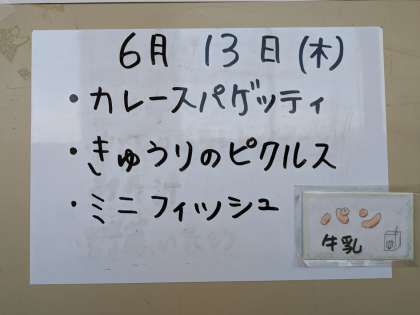 6月 13日(木)
・カレースパゲッティ
・きゅうりのピクルス
・ミニフィッシュ
パン
牛乳